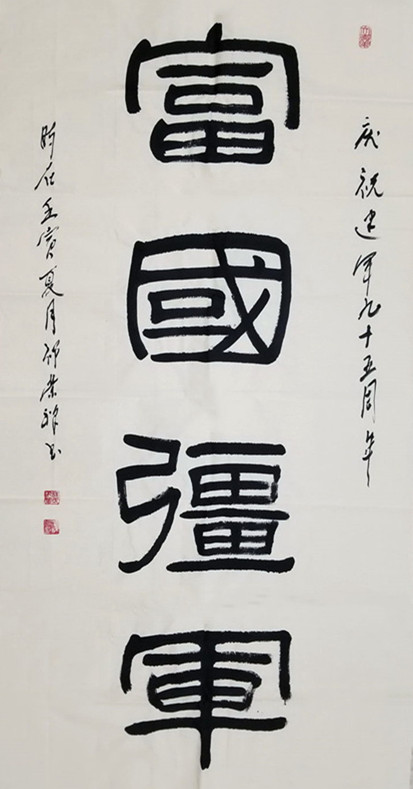 庆祝建军九十五周年
富國彊軍
时在壬寅夏月邵书